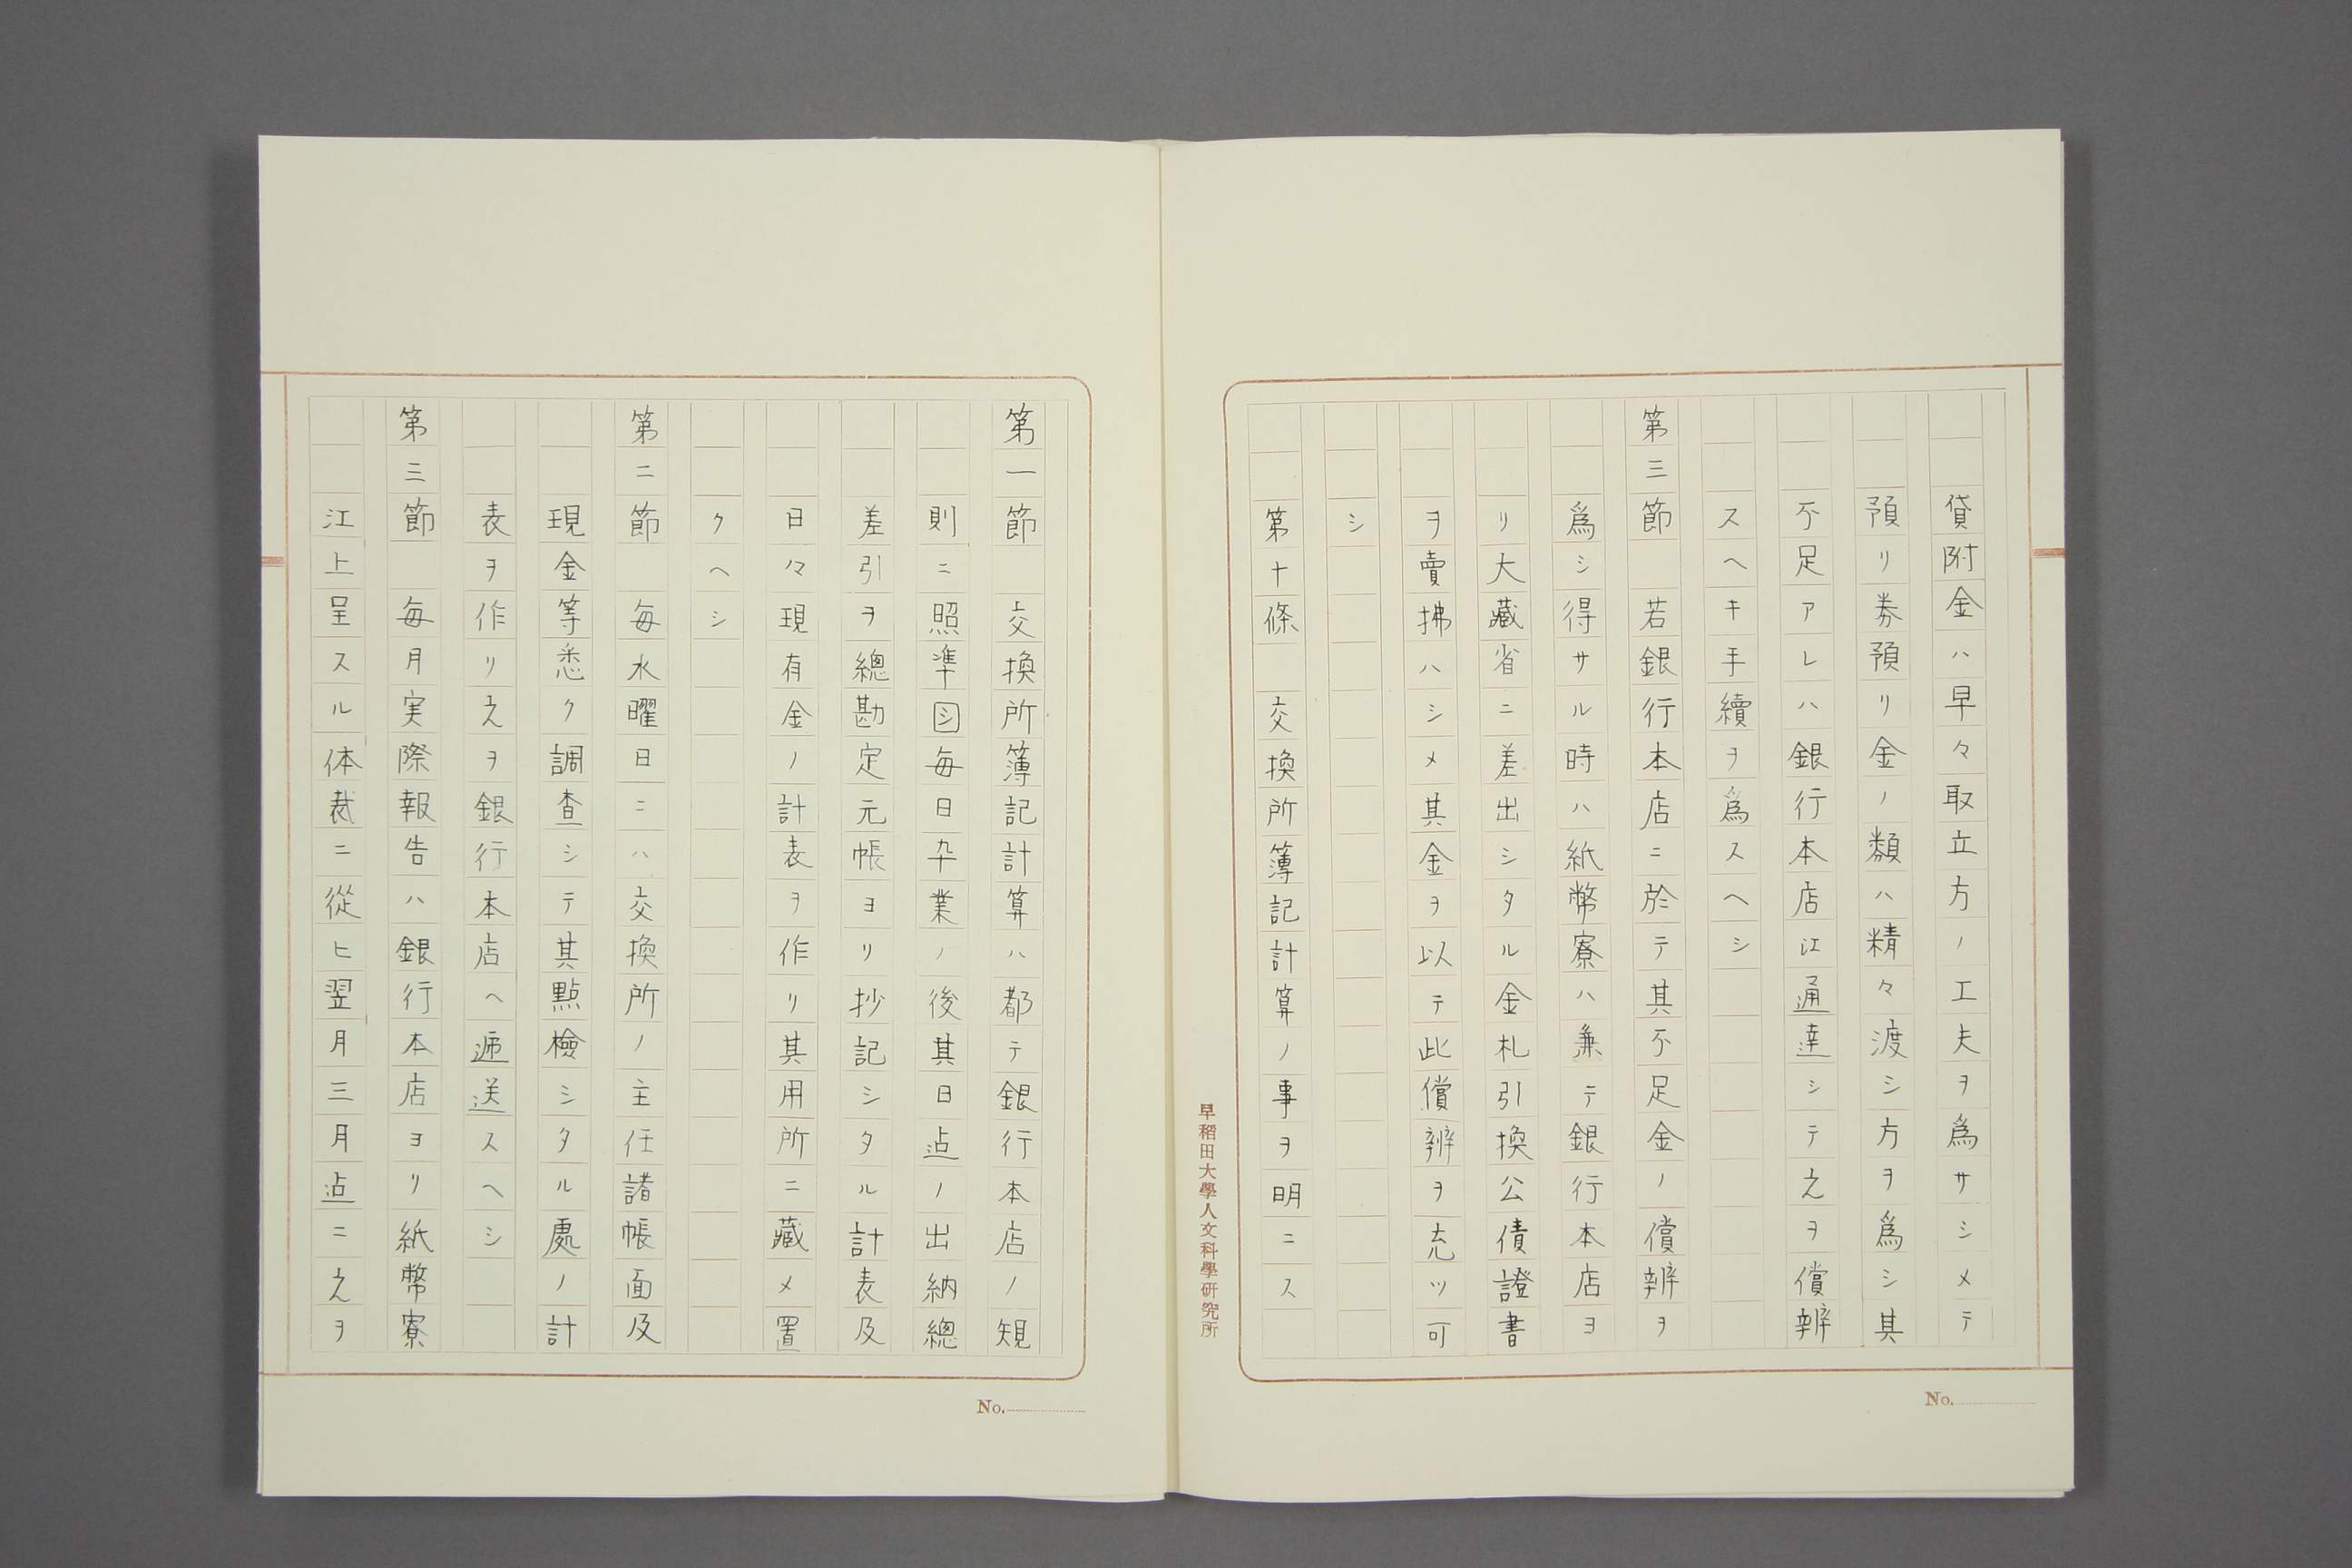 貸附金ハ早々取立方ノ工夫ヲ爲サシメテ
預リ券預リ金ノ類ハ精々渡シ方ヲ爲シ其
不足アレハ銀行本店江通達シテ之ヲ償辨
スヘキ手續ヲ爲スヘシ
第三節　若銀行本店ニ於テ其不足金ノ償辨ヲ
爲シ得サル時ハ紙幣寮ハ兼テ銀行本店ヨ
リ大藏省ニ差出シタル金札引換公債證書
ヲ賣拂ハシメ其金ヲ以テ此償辨ヲ充ツ可
シ
第十條　交換所簿記計算ノ事ヲ明ニス
早稻田大學人文科學研究所
No.
第一節　交換所簿記計算ハ都テ銀行本店ノ規
則ニ照準シ毎日卆業ノ後其日迠ノ出納總
差引ヲ總勘定元帳ヨリ抄記シタル計表及
日々現有金ノ計表ヲ作リ其用所ニ藏メ置
クヘシ
第二節　毎水曜日ニハ交換所ノ主任諸帳面及
現金等悉ク調査シテ其點檢シタル處ノ計
表ヲ作リ之ヲ銀行本店ヘ逓送スヘシ
第三節　毎月実際報告ハ銀行本店ヨリ紙幣寮
江上呈スル体裁ニ從ヒ翌月三月迠ニ之ヲ
No.